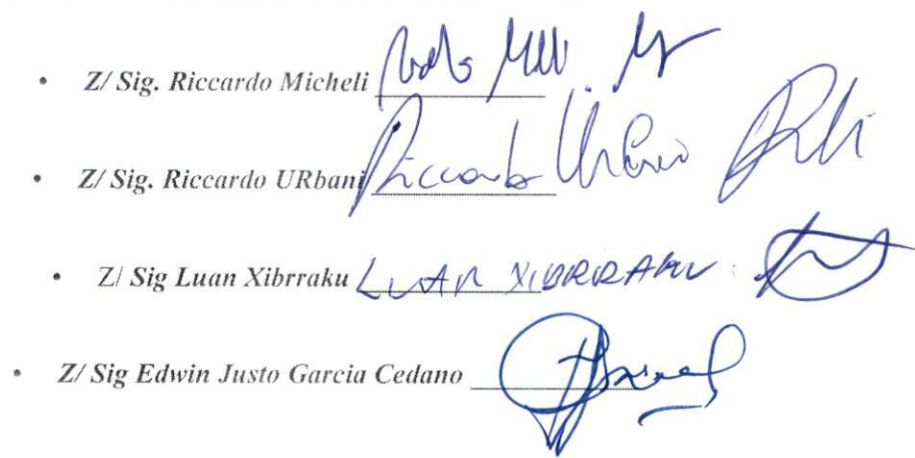 • Z/ Sig. Riccardo Micheli
• Z/ Sig. Riccardo URbani Riccardo Urbani
• Z/ Sig Luan Xibrraku LUAN XIBRRAKU
• Z/ Sig Edwin Justo Garcia Cedano